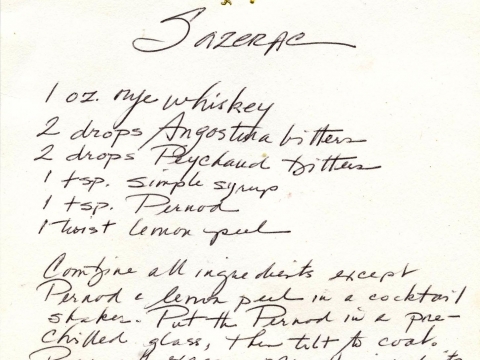 Sazerac
1 oz. rye whiskey
2 drops Angostina bitters
2 drops Peychaud bitters
1 tsp. simple syrup
1 tsp. Pernod
1 twist lemon peel
Combine all ingredients except
Pernod & lemon peel in a cocktail
shaker. Put the Pernod in a pre-
chilled glass, then tilt to coat.